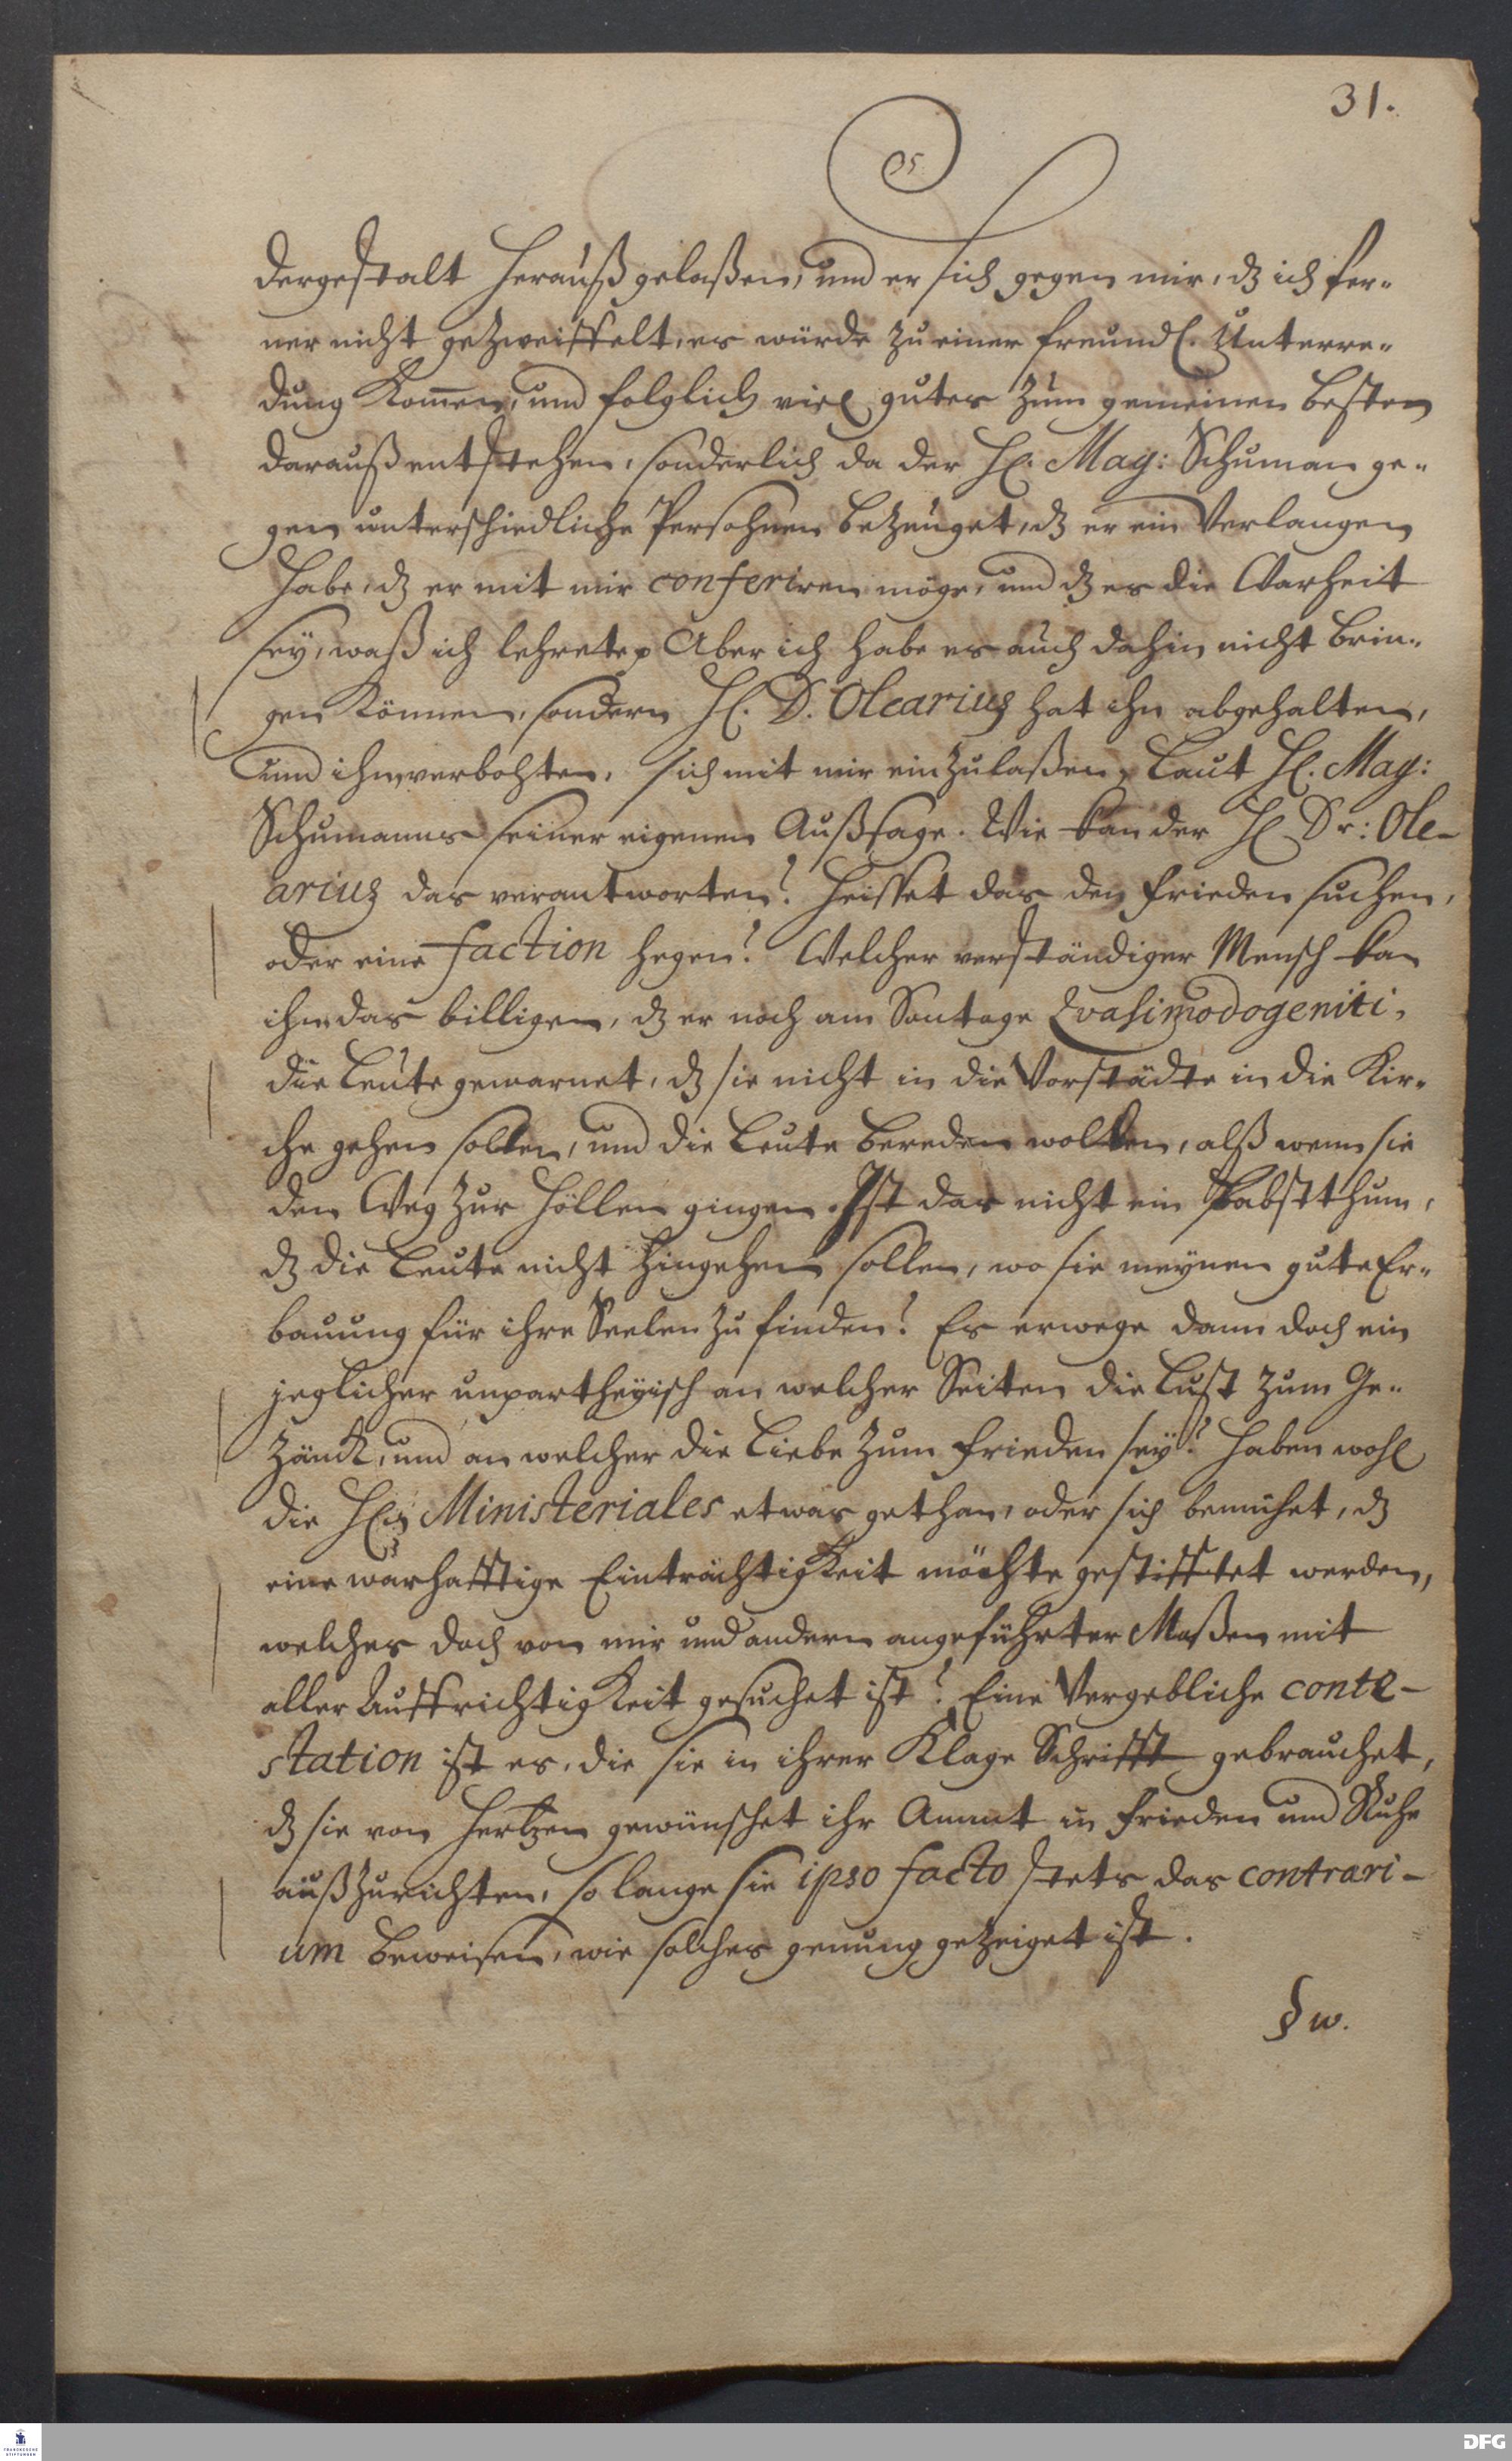 31.
35.
dergestalt herauß gelaßen, und er sich gegen mir, dz ich fer-
ner nicht gezweiffelt, es würde zu einer freundl. Unterre-
dung kom̃en, und folglich viel gutes zum gemeinen besten
darauß entstehen, sonderlich da der H. Mag: Schuman ge-
gen unterschiedliche Persohnen bezeuget, dz er ein Verlangen
habe, dz er mit mir conferiren möge, und dz es die Warheit
sey, waß ich lehrete, Aber ich habe es auch dahin nicht brin-
gen können, sondern H. D. Olearius hat ihn abgehalten,
und ihm verbohten, sich mit mir einzulaßen, Laut H. Mag:
Schumanns seiner eigenen Außsage. Wie kan der H Dr: Ole-
arius das verantworten? heisset das den frieden suchen,
oder eine faction hegen? Welcher verständiger Mensch kan
ihm das billigen, dz er noch am Sontage Qvasimodogeniti,
die Leute gewarnet, dz sie nicht in die Vorstädte in die Kir-
che gehen solten, und die Leute bereden wolten, alß wenn sie
den Weg zur Höllen gingen. Ist das nicht ein Pabstthum,
dz die Leute nicht hingehen sollen, wo sie meynen gute Er-
bauung für ihre Seelen zu finden? Es erwege dann doch ein
jeglicher unpartheyisch an welcher Seiten die Lust zum Ge-
zänck, und an welcher die Liebe zum frieden sey? haben wohl
die Hen Ministeriales etwas gethan, oder sich bemühet, dz
eine warhafftige Einträchtigkeit möchte gestifftet werden,
welches doch von mir und andern angeführter Maßen mit
aller Auffrichtigkeit gesuchet ist? Eine Vergebliche conte-
station ist es, die sie in ihrer Klage Schrifft gebrauchet,
dz sie von Hertzen gewünschet ihr Ammt in frieden und Ruhe
außzurichten, so lange sie ipso facto stets das contrari-
um beweisen, wie solches genung gezeiget ist.
§ w.
FRANCKESCHE
STIFTUNGEN
DFG